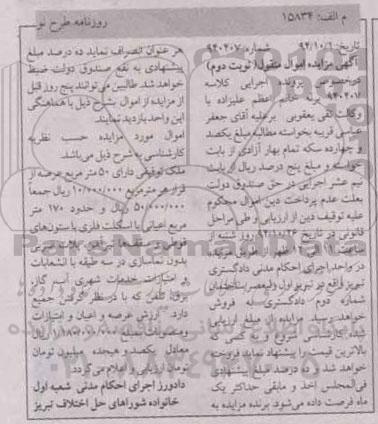 م الف: ۱۵۸۳۴
روزنامه طرح نو
تاریخ: ۹۴/۱۰/۱ شماره: ۹۴۰۴۰۷
آگهی مزایده اموال منقول (نوبت دوم)
درخصوص پرونده اجرایی کلاسه
۹۴۰۴۰۷ له خانم اعظم علیزاده با
وکالت تقی یعقوبی برعلیه آقای جعفر
عباسی قریبه بخواسته مطالبه مبلغ یکصد
و چهارده سکه تمام بهار آزادی از بابت
خواسته و مبلغ پنج درصد ریال از بابت
نیم عشر اجرایی در حق صندوق دولت
بعلت عدم پرداخت دین اموال محکوم
علیه توقیف دین از ارزیابی و طی مراحل
قانونی در تاریخ ۹۴/۱۰/۲۶ روز شنبه از
ساعت
در واحد اجرای احکام مدنی دادگستری
تبریز واقع در تبریز اول ولیعصر ساختمان
شماره دوم دادگستری به فروش
خواهد رسید مزایده از مبلغ ارزیابی
شده کارشناسی شروع و به کسی که
بالاترین قیمت را پیشنهاد نماید فروخته
خواهد شد ده درصد مبلغ پیشنهادی
فی‌المجلس اخذ و مابقی حداکثر یک
ماه فرصت داده می‌شود. برنده مزایده به
هر عنوان انصراف نماید ده درصد مبلغ
پیشنهادی به نفع صندوق دولت ضبط
خواهد شد. طالبین می‌توانند پنج روز قبل
از مزایده از اموال بشرح ذیل با هماهنگی
این واحد بازدید نمایند.
اموال مورد مزایده حسب نظریه
کارشناسی به شرح ذیل می‌باشد.
ملک توقیفی دارای ۵۰ متر مربع عرصه از
قرار هر مترمربع ۱۰/۰۰۰/۰۰۰ ریال جمعاً
۵۰۰/۰۰۰/۰۰۰ ریال و حدود ۱۷۰ متر
مربع اعیانی با اسکلت فلزی با ستون‌های
قوطی و سقف‌ها تیرآهن
بدون نماسازی در سه طبقه با انشعابات
و امتیازات خدمات شهری آب، گاز،
برق، تلفن که با در نظر گرفتن جمیع
ارزش عرصه و اعیان و امتیازات
ریال
معادل یکصد و هیجده میلیون تومان
تومان ارزیابی و اعلام می‌گردد.
دادورز اجرای احکام مدنی شعبه اول
خانواده شوراهای حل اختلاف تبریز
ParsNamadData